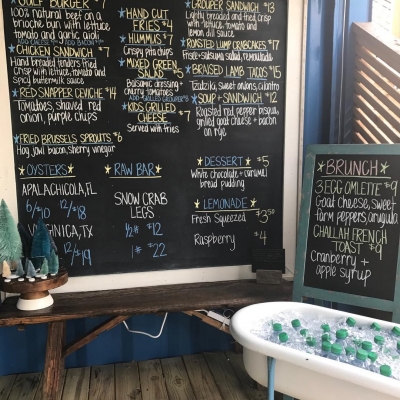 GULF BURGER $7
100% natural beef on a
brioche bun with lettuce,
tomato and garlic aioli.
CHICKEN SANDWICH $7
Hand breaded tenders fried
crisp with lettuce, tomato and
spicy buttermilk sauce
RED SNAPPER CEVICHE $14
Tomatoes, shaved red
onion, purple chips
FRIED BRUSSELS SPROUTS $6
Hog jowl bacon, sherry vinegar
HAND CUT
FRIES $4
HUMMUS $7
Crispy pita chips
MIXED GREEN
SALAD $5
Balsamic dressing +
cherry tomatoes
KIDS GRILLED
CHEESE $7
Served with fries
GROUPER SANDWICH $13
Lightly breaded and fried crisp
with lettuce, tomato and
lemon dill sauce
ROASTED LUMP CRABCAKES $7
remoulade
BRAISED LAMB TACOS $15
Tzatziki, sweet onions, cilantro
SOUP + SANDWICH $12
Roasted red pepper bisque,
grilled goat cheese + bacon
on rye
OYSTERS
APALACHICOLA, FL
6/$10 12/$18
VIRGINIA, TX
12/$19
RAW BAR
SNOW CRAB
LEGS
1/2# $12
1# $22
DESSERT $5
White chocolate + caramel
bread pudding
LEMONADE
Fresh Squeezed $3.50
Raspberry $4
BRUNCH
3 EGG OMLETTE $9
Goat cheese, sweet
farm peppers, arugula
CHALLAH FRENCH
TOAST $9
Cranberry +
apple syrup